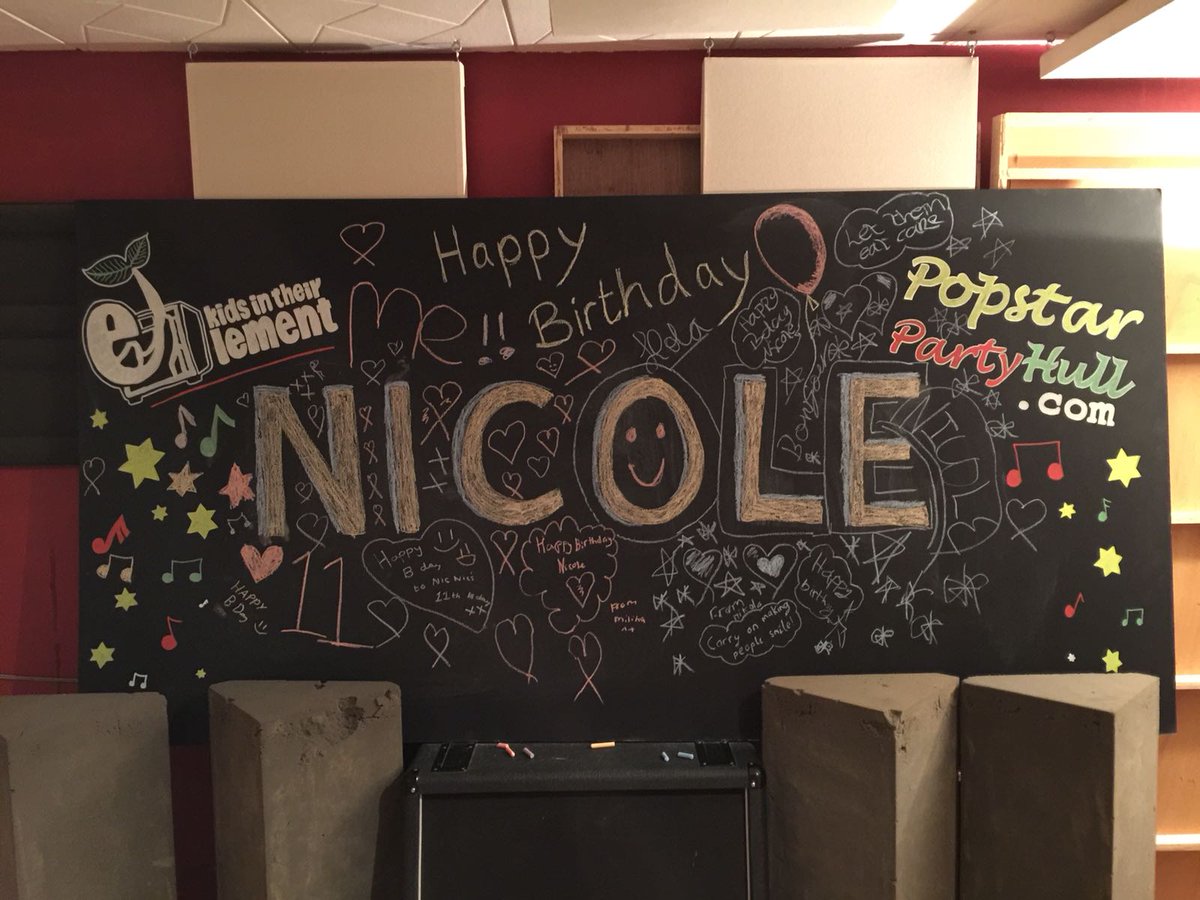 Happy
Birthday
Me!!
Let them
eat cake
kids in their
element
Popstar
PartyHull
.com
Happy
Bday
Nicole
NICOLE
11
HAPPY
BDay
Happy
B day
to Nic Nic's
11th bday
xx
Happy Birthday
Nicole
From
Happy
birthday
From
Carry on making
people smile!